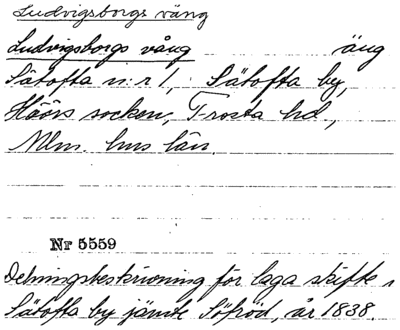 Ludvigsborgs väng
Ludvigsborgs vång äng
Sätofta n:r 1, Sätofta by,
Höörs socken, Frosta hd.,
Mlm. hus län.
Nr 5559
Delningsbeskrivning för laga skifte
Sätofta by jämte Sjöröd, år 1838.